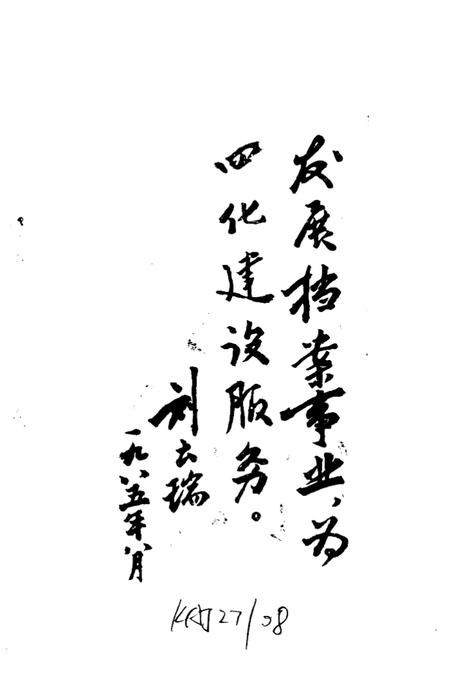 发展档案事业，为
四化建设服务。
刘云瑞
一九八五年八月
27/08